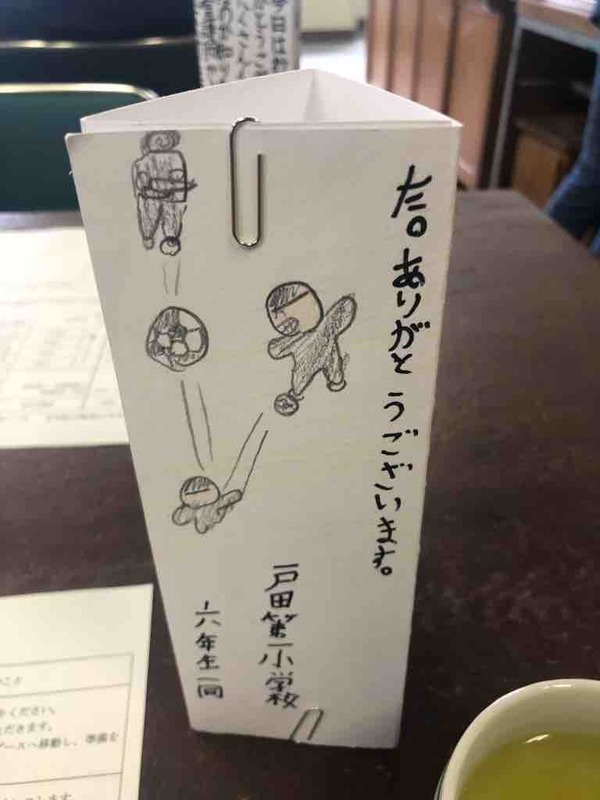 た。ありがとうございます。
戸田第一小学校
六年生一同
今日はお
ください。
だきます。
ブースへ移動し、準備を